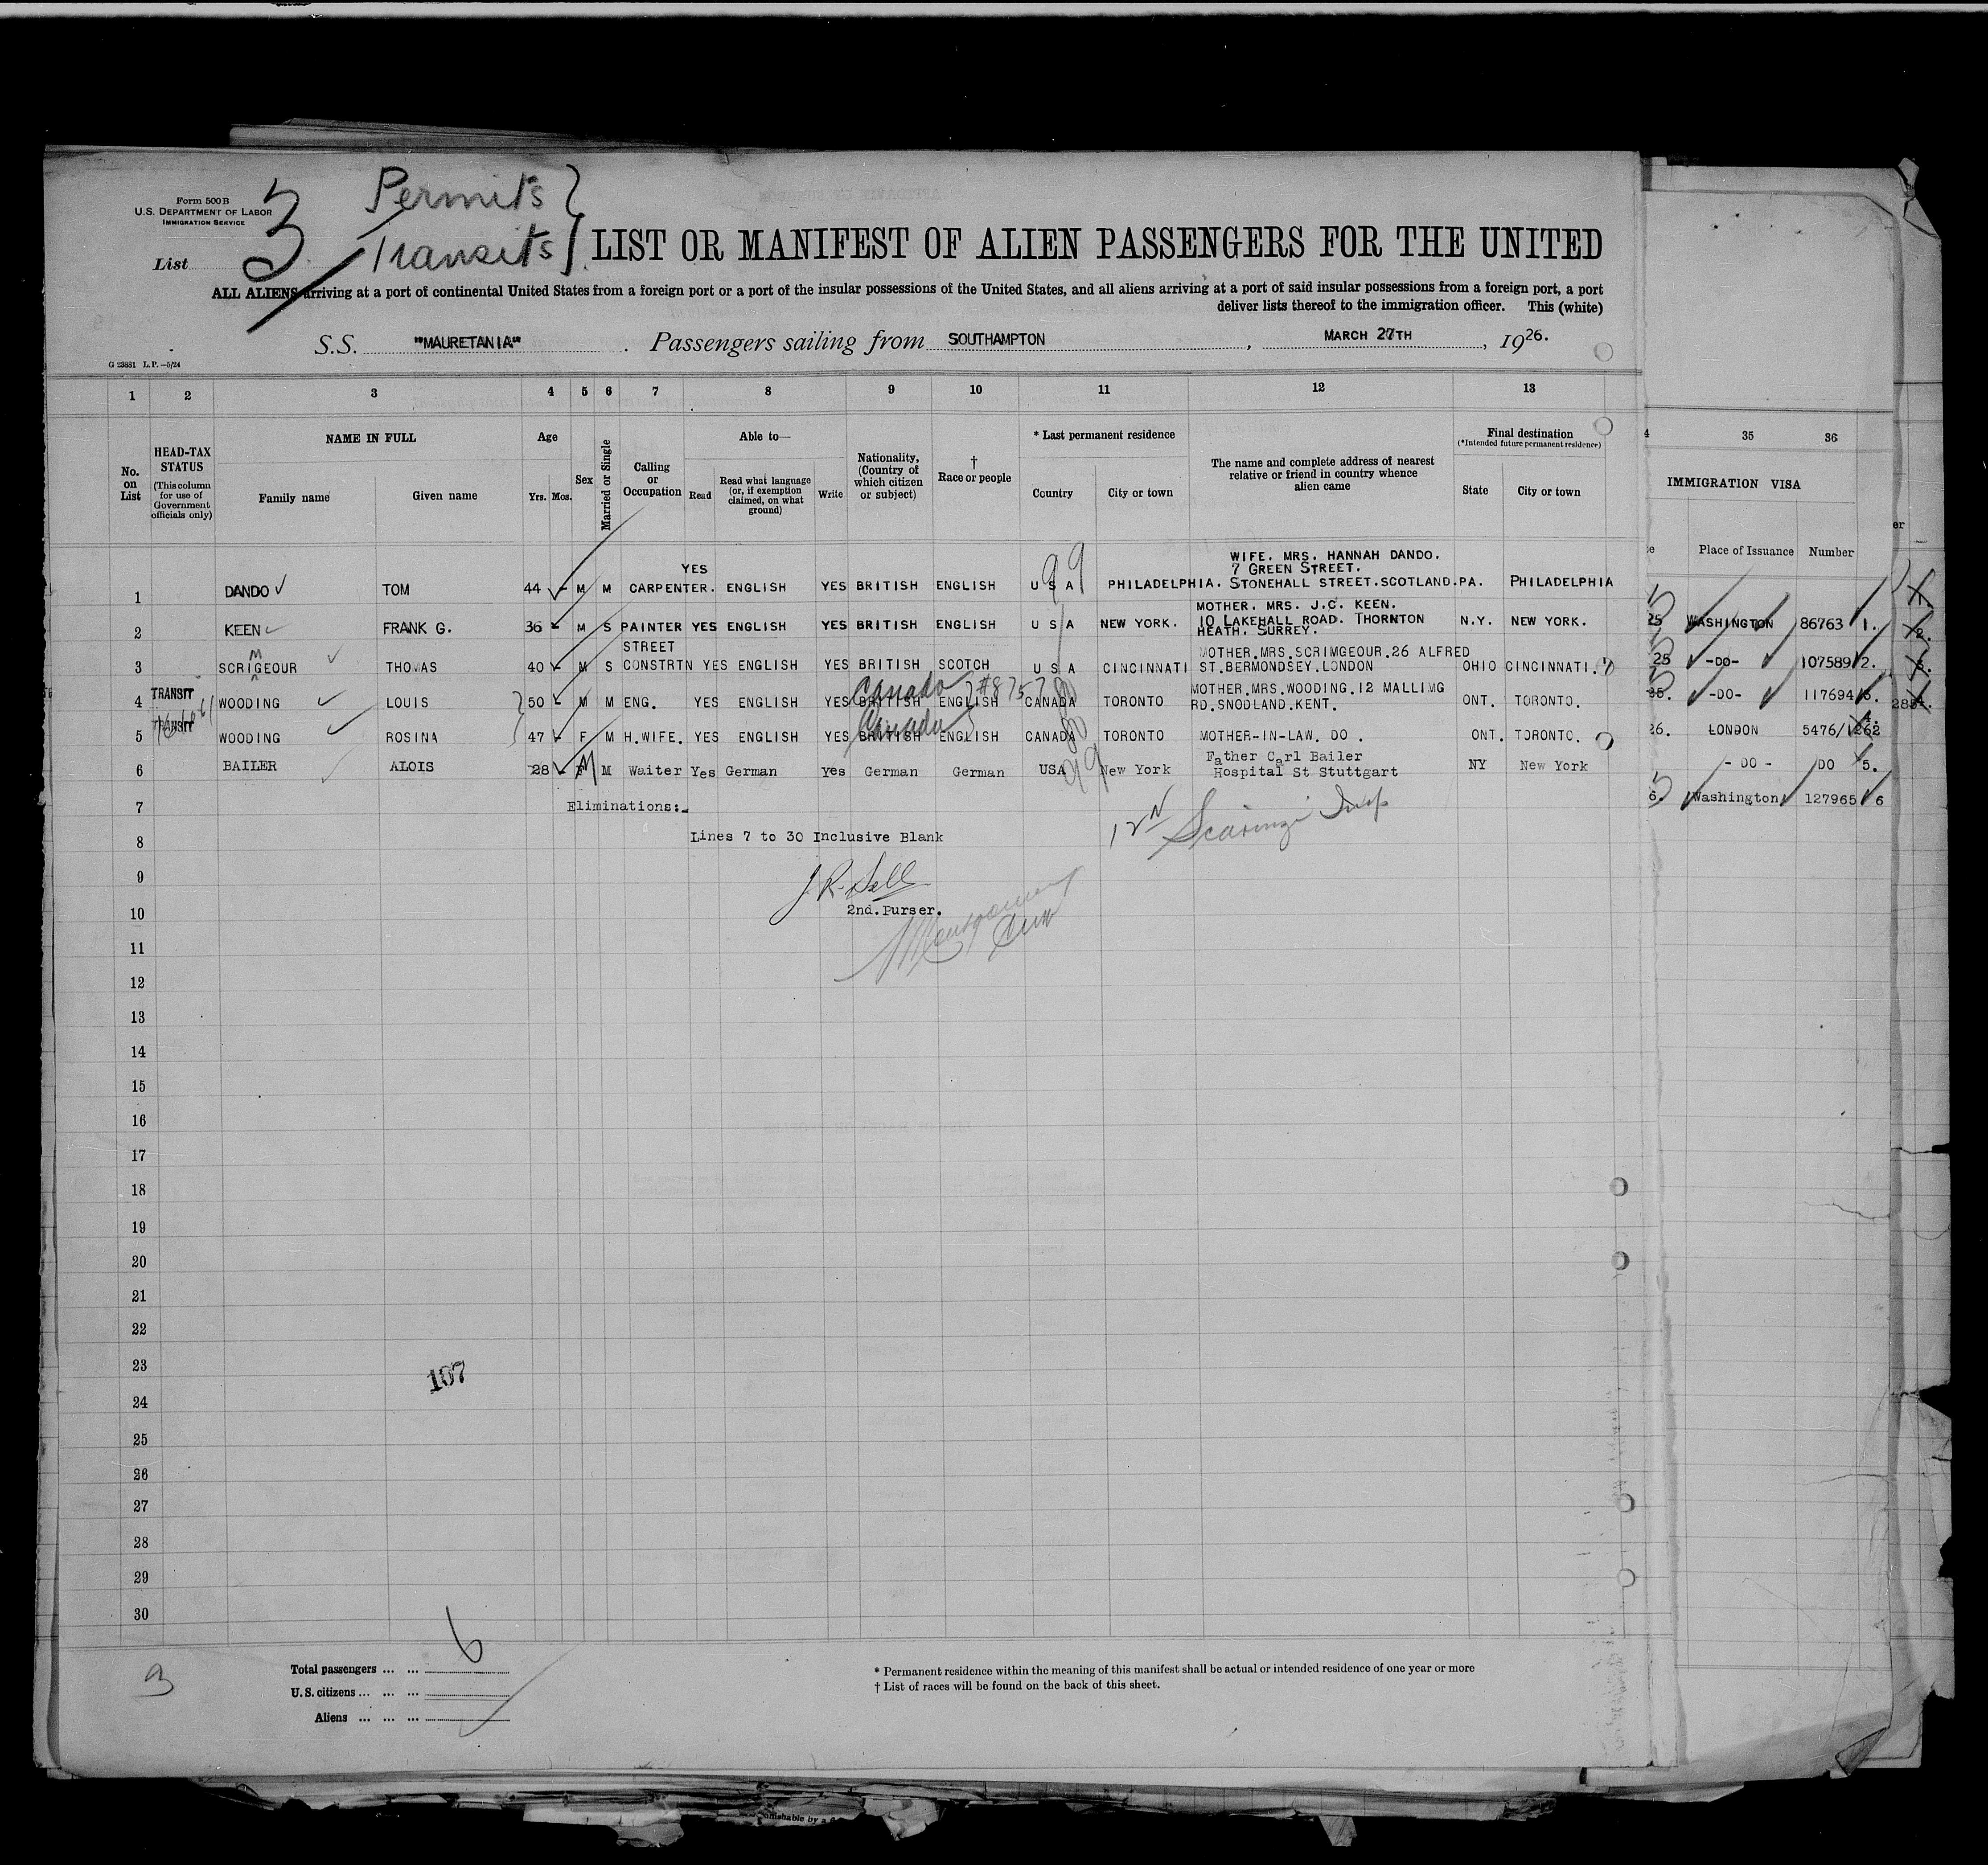 Form 500 B
U.S. DEPARTMENT OF LABOR
IMMIGRATION SERVICE
List 3
Permits
Transits
LIST OR MANIFEST OF ALIEN PASSENGERS FOR THE UNITED
ALL ALIENS arriving at a port of continental United States from a foreign port or a port of the insular possessions of the United States, and all aliens arriving at a port of said insular possessions from a foreign port, a port
deliver lists thereof to the immigration officer. This (white)
S.S. "MAURETANIA" Passengers sailing from SOUTHAMPTON, MARCH 27TH, 1926.
G 23881 L.P.—5/24
1 2 3 4 5 6 7 8 9 10 11 12 13 35 36
No. on List
HEAD-TAX STATUS
(This column for use of Government officials only)
NAME IN FULL
Family name Given name
Age
Yrs. Mos.
Sex
Married or Single
Calling or Occupation
Able to—
Read
Read what language (or, if exemption claimed, on what ground)
Write
Nationality, (Country of which citizen or subject)
† Race or people
* Last permanent residence
Country City or town
The name and complete address of nearest relative or friend in country whence alien came
Final destination
(*Intended future permanent residence)
State City or town
IMMIGRATION VISA
Place of Issuance Number
1 DANDO TOM 44 M M CARPENTER. YES ENGLISH YES BRITISH ENGLISH U S A PHILADELPHIA. WIFE. MRS. HANNAH DANDO. 7 GREEN STREET. STONEHALL STREET.SCOTLAND. PA. PHILADELPHIA
2 KEEN FRANK G. 36 M S PAINTER YES ENGLISH YES BRITISH ENGLISH U S A NEW YORK. MOTHER. MRS. J.C. KEEN. 10 LAKEHALL ROAD. THORNTON HEATH. SURREY. N.Y. NEW YORK. 25 WASHINGTON 86763 1.
3 SCRIGEOUR M THOMAS 40 M S STREET CONSTRTN YES ENGLISH YES BRITISH SCOTCH U S A CINCINNATI MOTHER.MRS.SCRIMGEOUR.26 ALFRED ST.BERMONDSEY.LONDON OHIO CINCINNATI. 25 -DO- 107589 2.
4 TRANSIT WOODING LOUIS 50 M M ENG. YES ENGLISH YES BRITISH Canada ENGLISH #8757 CANADA TORONTO MOTHER.MRS.WOODING.12 MALLIMG RD.SNODLAND.KENT. ONT. TORONTO. -DO- 117694
5 TRANSIT WOODING ROSINA 47 F M H.WIFE. YES ENGLISH YES BRITISH Canada ENGLISH CANADA TORONTO MOTHER-IN-LAW. DO. ONT. TORONTO. 26. LONDON 5476/1262
6 BAILER ALOIS 28 M M Waiter Yes German Yes German German USA New York Father Carl Bailer Hospital St Stuttgart NY New York - DO - DO 5.
7 Eliminations:- 6. Washington 127965 6
8 Lines 7 to 30 Inclusive Blank
9
10 2nd. Purser.
11
12
13
14
15
16
17
18
19
20
21
22
23
107
24
25
26
27
28
29
30
Total passengers ... ... 6
U.S. citizens ... ... ...
Aliens ... ... ...
3
* Permanent residence within the meaning of this manifest shall be actual or intended residence of one year or more
† List of races will be found on the back of this sheet.